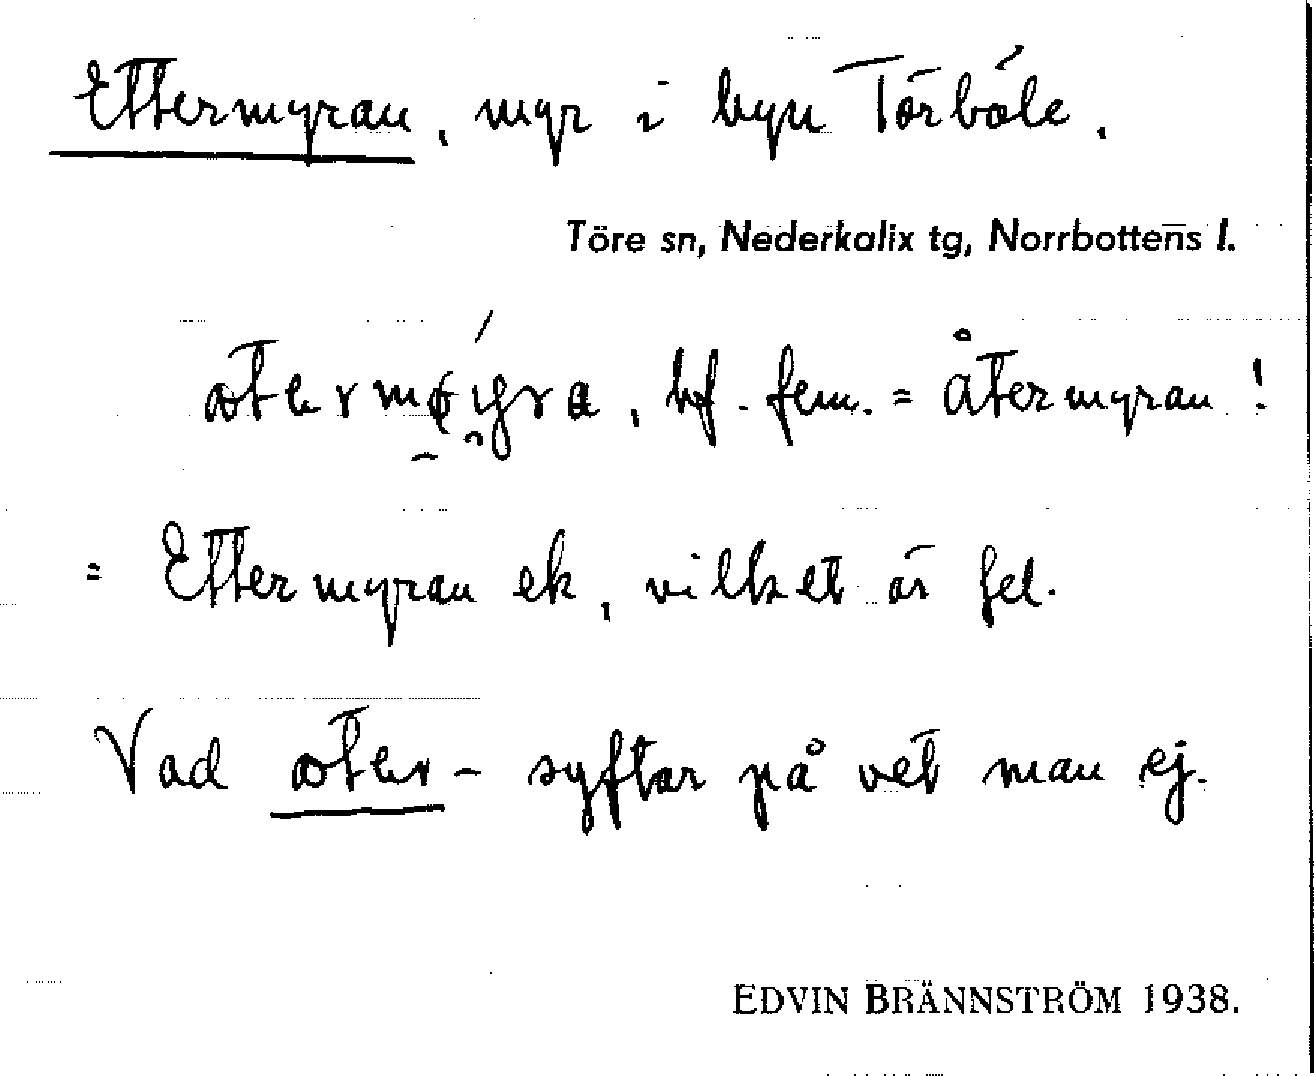 Ettermyran, myr i byn Törböle.
Töre sn, Nederkalix tg, Norrbottens l.
bf. fem. = Återmyran!
= Ettermyran ek, vilket är fel.
Vad syftar på vet man ej.
EDVIN BRÄNNSTRÖM 1938.